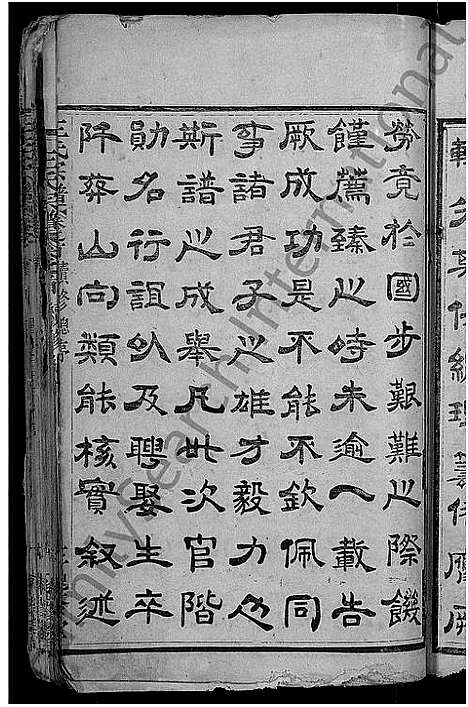 勞竟於國步艱難之際饑
饉薦臻之時未逾一載告
厥成功是不能不欽佩同
事諸君子之雄才毅力也
斯譜之成舉凡世次官階
勛名行誼以及聘娶生卒
阡葬山向類能核實叙述